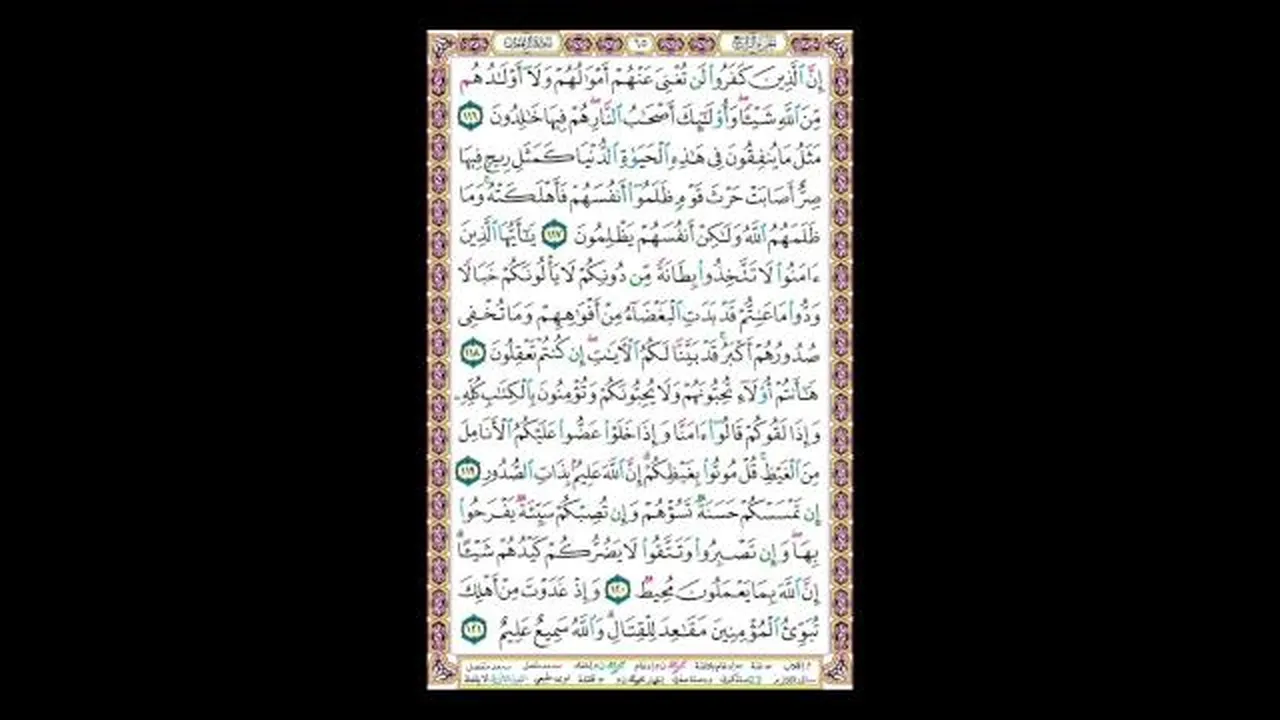 الجزء الرابع ٦٥ سورة آل عمران
إِنَّ ٱلَّذِينَ كَفَرُوا۟ لَن تُغْنِىَ عَنْهُمْ أَمْوَٰلُهُمْ وَلَآ أَوْلَـٰدُهُم
مِّنَ ٱللَّهِ شَيْـًٔا ۖ وَأُو۟لَـٰٓئِكَ أَصْحَـٰبُ ٱلنَّارِ ۖ هُمْ فِيهَا خَـٰلِدُونَ ١١٦
مَثَلُ مَا يُنفِقُونَ فِى هَـٰذِهِ ٱلْحَيَوٰةِ ٱلدُّنْيَا كَمَثَلِ رِيحٍ فِيهَا
صِرٌّ أَصَابَتْ حَرْثَ قَوْمٍ ظَلَمُوٓا۟ أَنفُسَهُمْ فَأَهْلَكَتْهُ ۚ وَمَا
ظَلَمَهُمُ ٱللَّهُ وَلَـٰكِنْ أَنفُسَهُمْ يَظْلِمُونَ ١١٧ يَـٰٓأَيُّهَا ٱلَّذِينَ
ءَامَنُوا۟ لَا تَتَّخِذُوا۟ بِطَانَةً مِّن دُونِكُمْ لَا يَأْلُونَكُمْ خَبَالًا
وَدُّوا۟ مَا عَنِتُّمْ قَدْ بَدَتِ ٱلْبَغْضَآءُ مِنْ أَفْوَٰهِهِمْ وَمَا تُخْفِى
صُدُورُهُمْ أَكْبَرُ ۚ قَدْ بَيَّنَّا لَكُمُ ٱلْـَٔايَـٰتِ ۖ إِن كُنتُمْ تَعْقِلُونَ ١١٨
هَـٰٓأَنتُمْ أُو۟لَآءِ تُحِبُّونَهُمْ وَلَا يُحِبُّونَكُمْ وَتُؤْمِنُونَ بِٱلْكِتَـٰبِ كُلِّهِۦ
وَإِذَا لَقُوكُمْ قَالُوٓا۟ ءَامَنَّا وَإِذَا خَلَوْا۟ عَضُّوا۟ عَلَيْكُمُ ٱلْأَنَامِلَ
مِنَ ٱلْغَيْظِ ۚ قُلْ مُوتُوا۟ بِغَيْظِكُمْ ۗ إِنَّ ٱللَّهَ عَلِيمٌۢ بِذَاتِ ٱلصُّدُورِ ١١٩
إِن تَمْسَسْكُمْ حَسَنَةٌ تَسُؤْهُمْ وَإِن تُصِبْكُمْ سَيِّئَةٌ يَفْرَحُوا۟
بِهَا ۖ وَإِن تَصْبِرُوا۟ وَتَتَّقُوا۟ لَا يَضُرُّكُمْ كَيْدُهُمْ شَيْـًٔا ۗ
إِنَّ ٱللَّهَ بِمَا يَعْمَلُونَ مُحِيطٌ ١٢٠ وَإِذْ غَدَوْتَ مِنْ أَهْلِكَ
تُبَوِّئُ ٱلْمُؤْمِنِينَ مَقَـٰعِدَ لِلْقِتَالِ ۗ وَٱللَّهُ سَمِيعٌ عَلِيمٌ ١٢١